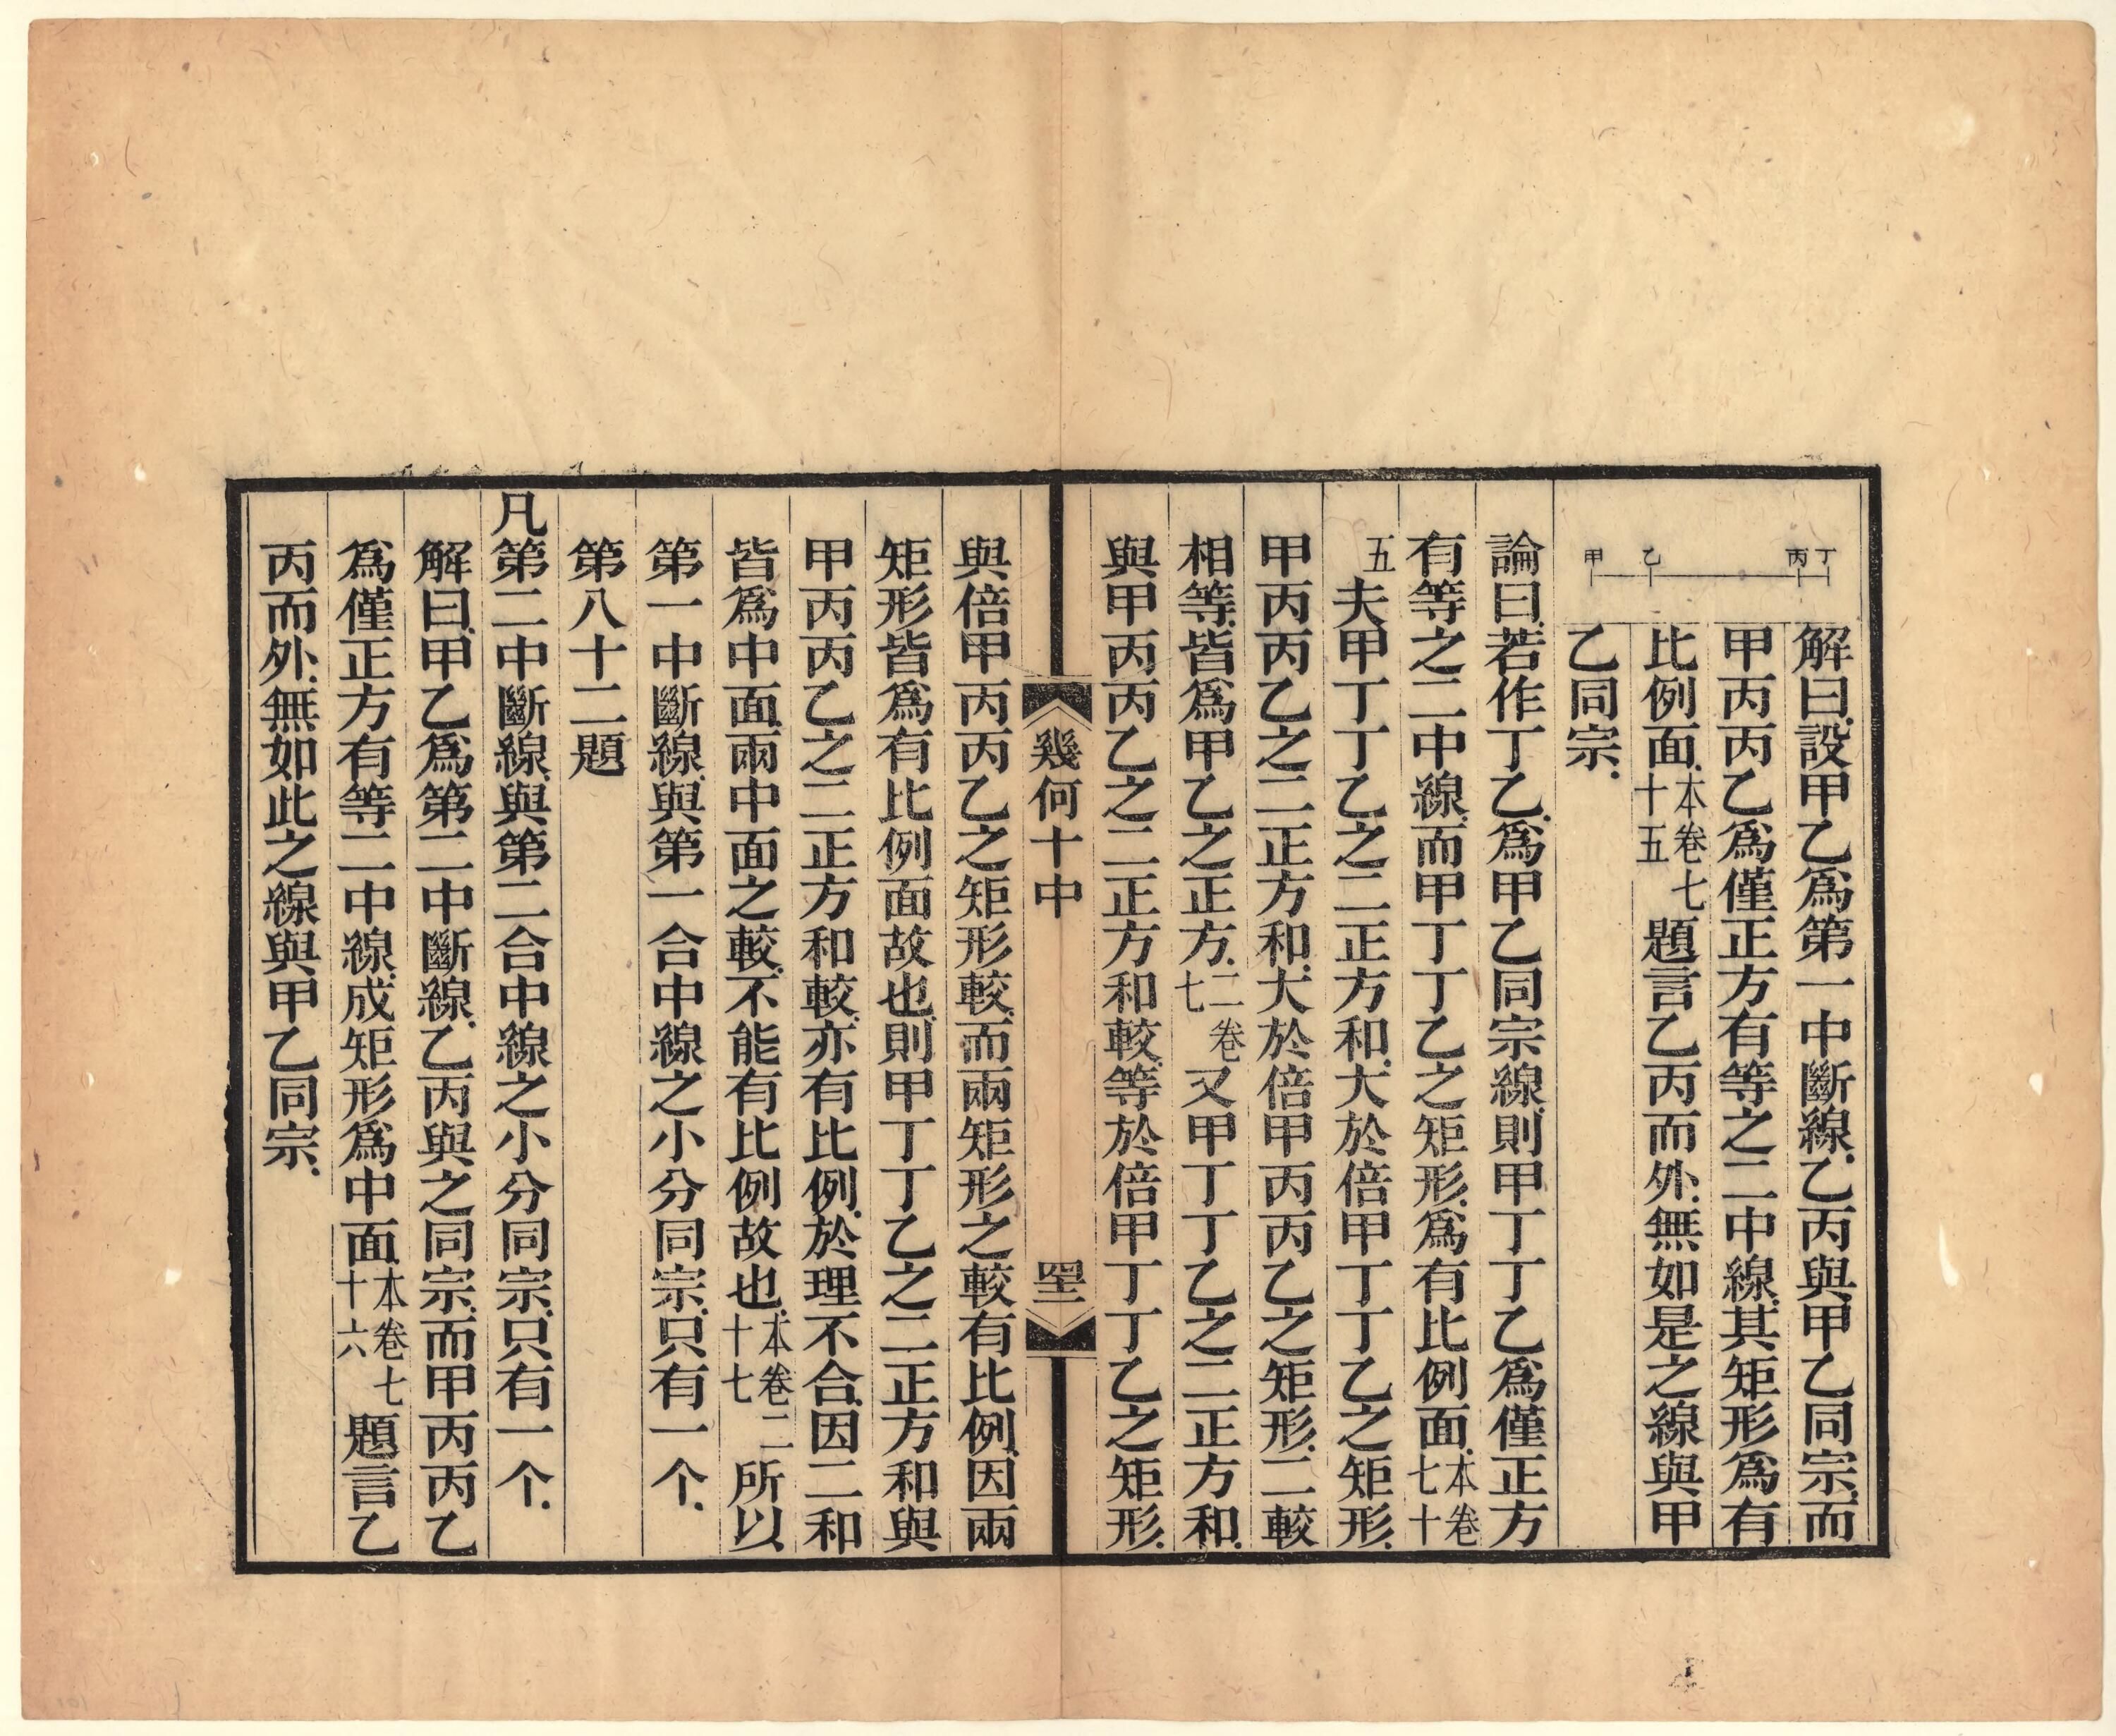 甲 乙 丙 丁
解曰設甲乙爲第一中斷線乙丙與甲乙同宗而
甲丙丙乙爲僅正方有等之二中線其矩形爲有
比例面本卷七十五題言乙丙而外無如是之線與甲
乙同宗
論曰若作丁乙爲甲乙同宗線則甲丁丁乙爲僅正方
有等之二中線而甲丁丁乙之矩形爲有比例面本卷七十
五夫甲丁丁乙之二正方和大於倍甲丁丁乙之矩形
甲丙丙乙之二正方和大於倍甲丙丙乙之矩形二較
相等皆爲甲乙之正方二卷七又甲丁丁乙之二正方和
與甲丙丙乙之二正方和較等於倍甲丁丁乙之矩形
幾何十中 四十一
與倍甲丙丙乙之矩形較而兩矩形之較有比例因兩
矩形皆爲有比例面故也則甲丁丁乙之二正方和與
甲丙丙乙之二正方和較亦有比例於理不合因二和
皆爲中面兩中面之較不能有比例故也本卷二十七所以
第一中斷線與第一合中線之小分同宗只有一个
第八十二題
凡第二中斷線與第二合中線之小分同宗只有一个
解曰甲乙爲第二中斷線乙丙與之同宗而甲丙丙乙
爲僅正方有等二中線成矩形爲中面本卷七十六題言乙
丙而外無如此之線與甲乙同宗